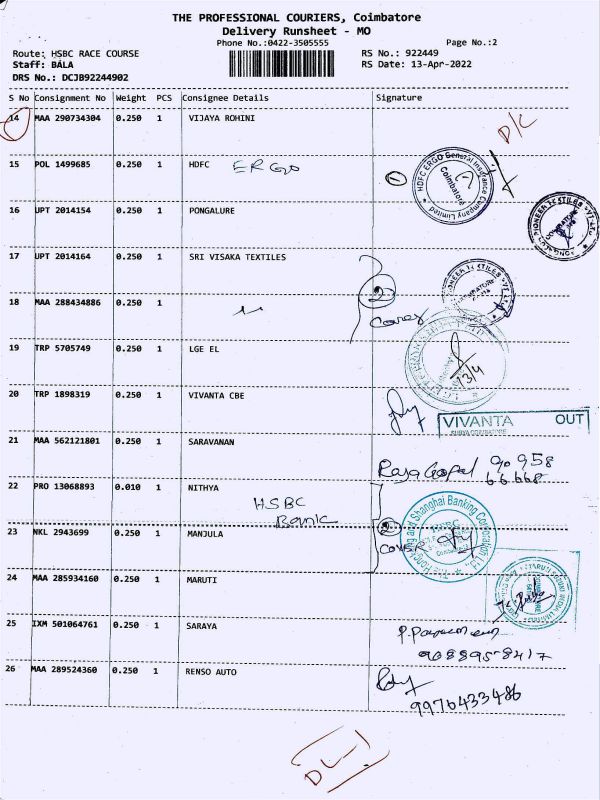 THE PROFESSIONAL COURIERS, Coimbatore
Delivery Runsheet - MO
Phone No.:0422-3505555 Page No.:2
Route: HSBC RACE COURSE RS No.: 922449
Staff: BALA RS Date: 13-Apr-2022
DRS No.: DCJB92244902
S No Consignment No Weight PCS Consignee Details Signature
14 MAA 290734304 0.250 1 VIJAYA ROHINI D/C
15 POL 1499685 0.250 1 HDFC ERGO 1
HDFC ERGO General Insurance Company Limited
Coimbatore
16 UPT 2014154 0.250 1 PONGALURE
17 UPT 2014164 0.250 1 SRI VISAKA TEXTILES
18 MAA 288434886 0.250 1 2
Cover
19 TRP 5705749 0.250 1 LGE EL
13/4
20 TRP 1898319 0.250 1 VIVANTA CBE
VIVANTA OUT
21 MAA 562121801 0.250 1 SARAVANAN
RajaGopal 90958
66668
22 PRO 13068893 0.010 1 NITHYA
HSBC
Bank
23 NKL 2943699 0.250 1 MANJULA 2
COVER
24 MAA 285934160 0.250 1 MARUTI
25 IXM 501064761 0.250 1 SARAYA
9088958417
26 MAA 289524360 0.250 1 RENSO AUTO
9976433486
DL-1